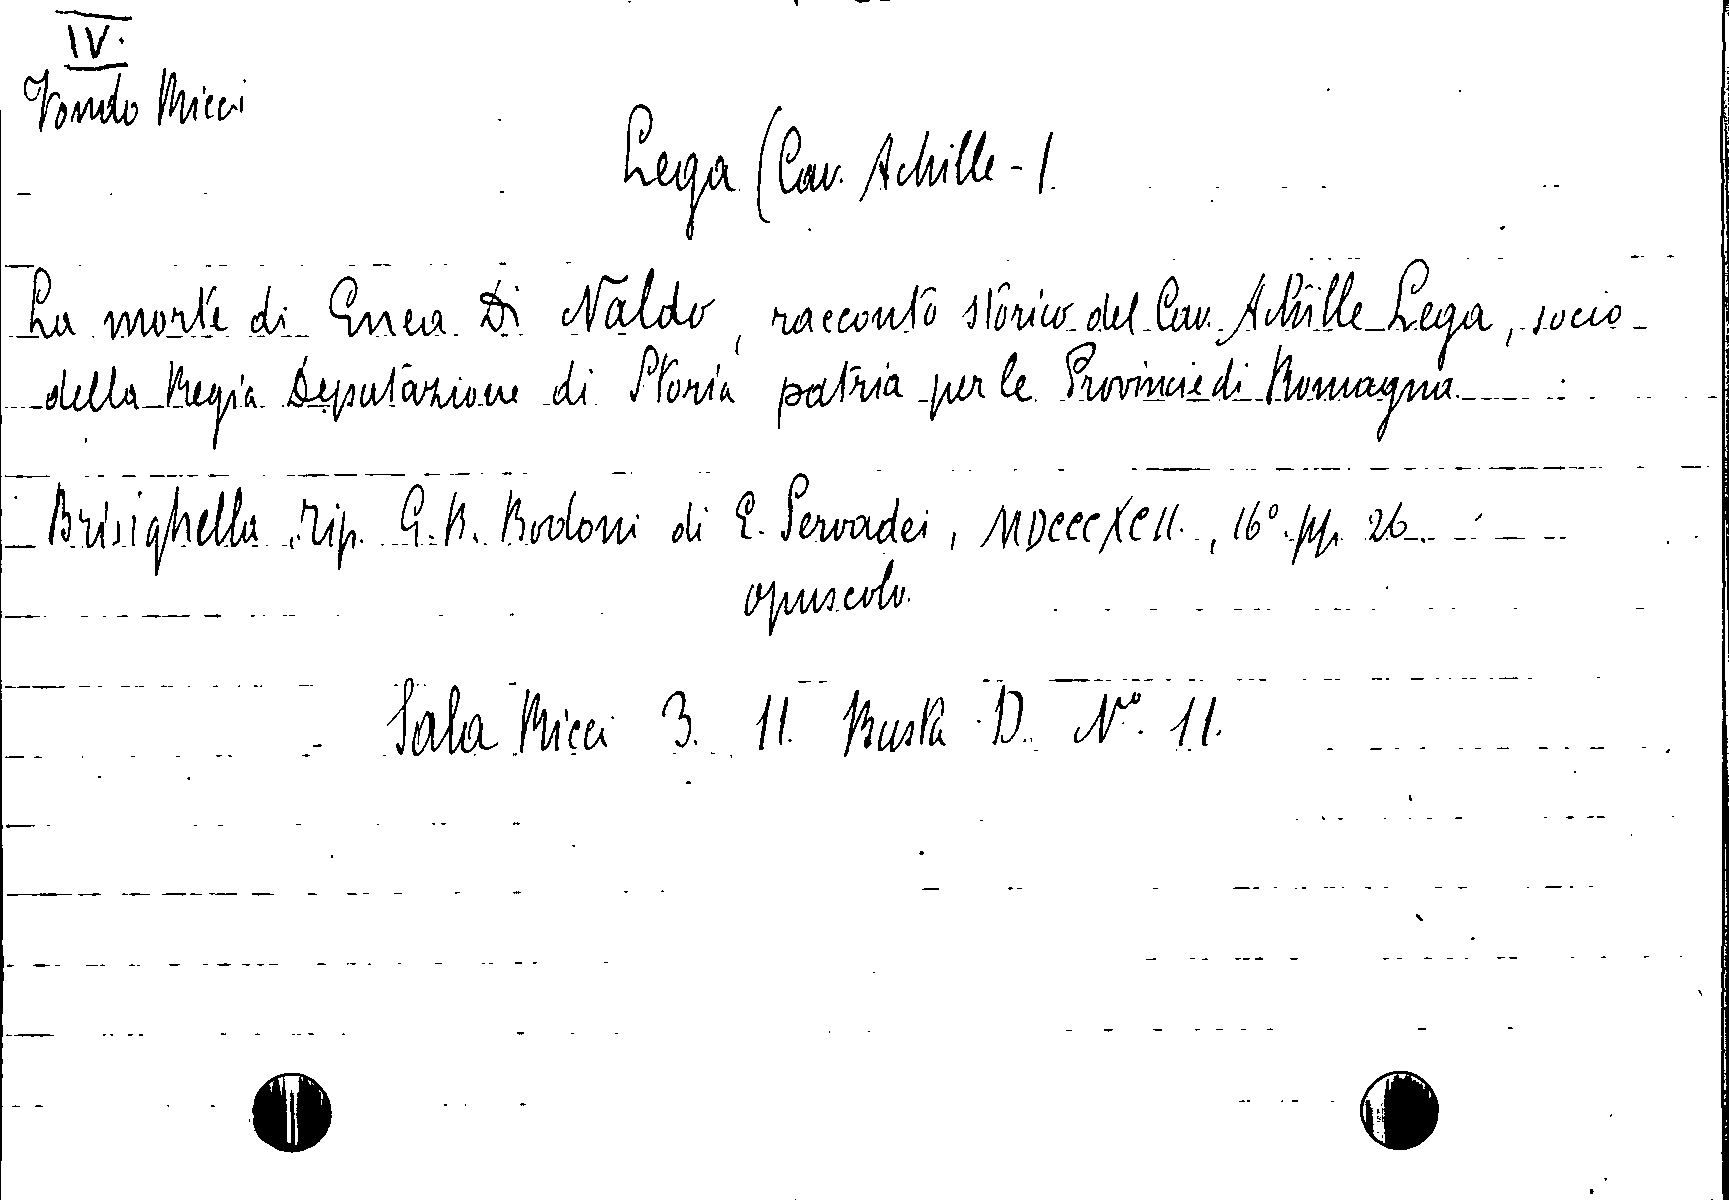 IV.
Fondo Ricci
Lega (Cav. Achille - )
La morte di Enea Di Naldo, racconto storico del Cav. Achille Lega, socio
della Regia Deputazione di Storia patria per le Provincie di Romagna.
Brisighella, Tip. G. B. Bodoni di E. Servadei, MDCCCXCII., 16° pp. 26.
opuscolo.
Sala Ricci 3. 11. Busta D. N° 11.